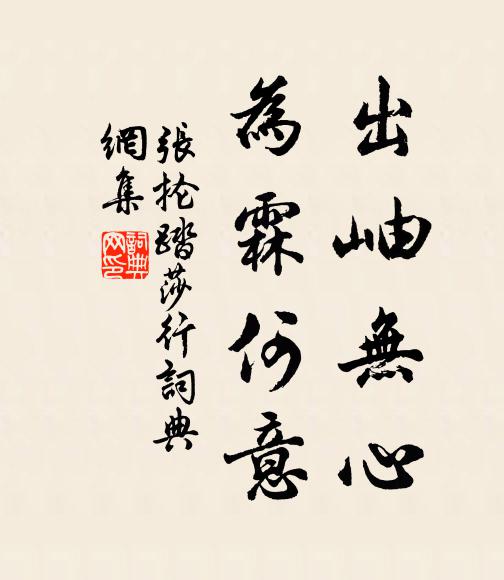 出岫無心
為霖何意
張抡踏莎行詞典
網集
詞典
网印